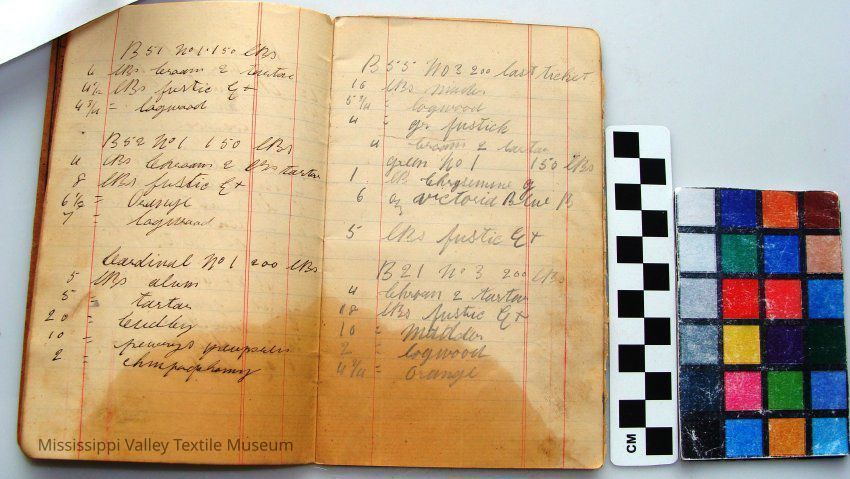 B 51 No 1 150 lBs
4 lBs Croam 2 tartar
4 1/2 lBs fustic Ext
4 3/4 = logwood
B 52 No 1 150 LBs
4 LBs Chroam 2 LBs tartar
8 LBs fustic Ext
6 1/2 = Orange
7 = logwood
Cardinal No 1 200 LBs
5 LBs alum
5 = tartar
20 =
10 =
2 =
B 55 No 3 200 last ticket
16 LBs Mader
5 3/4 = logwood
4 = gr fustick
4 Croam 2 tartar
green No 1 150 LBs
1 LB
6 oz victoria Blue B
5 LBs fustic Ext
B 21 No 3 200 LBs
4 Chroam 2 tartar
18 LBs fustic Ext
10 = Madder
2 = logwood
4 3/4 = Orange
CM
Mississippi Valley Textile Museum